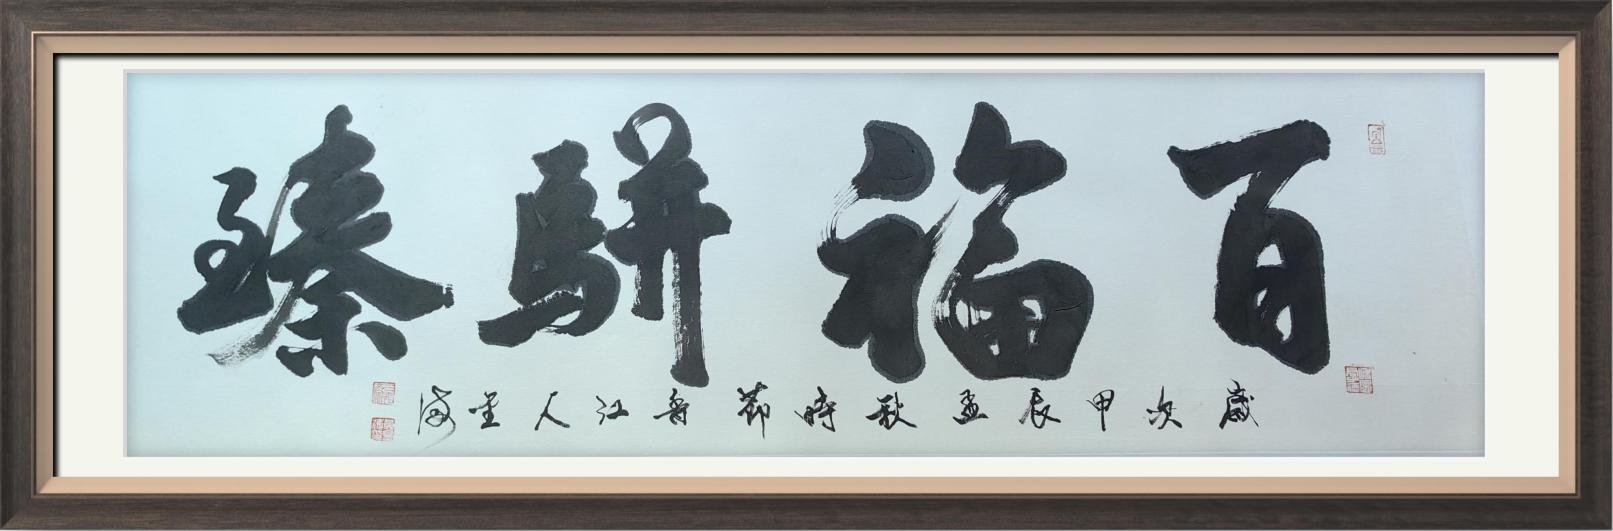 百福駢臻
歲次甲辰孟秋時節江人海